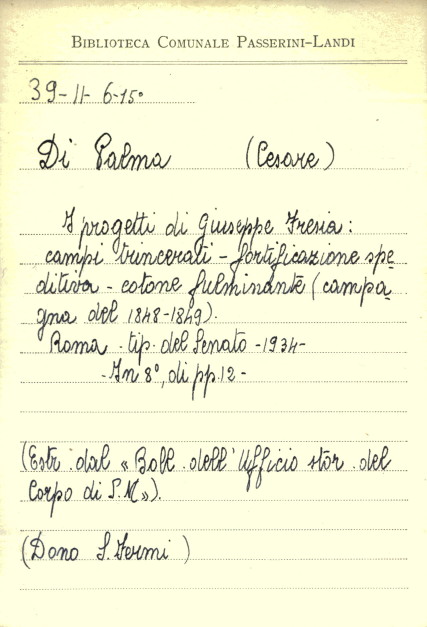 BIBLIOTECA COMUNALE PASSERINI-LANDI
39-11- 6-15°
Di Palma (Cesare)
I progetti di Giuseppe Fresia:
campi trincerati - fortificazione spe-
ditiva - cotone fulminante (campa-
gna del 1848-1849).
Roma - tip. del Senato - 1934-
- In 8°, di pp. 12 -
(Estr. dal « Boll. dell' Ufficio stor. del
Corpo di S.M»).
(Dono S. Fermi)